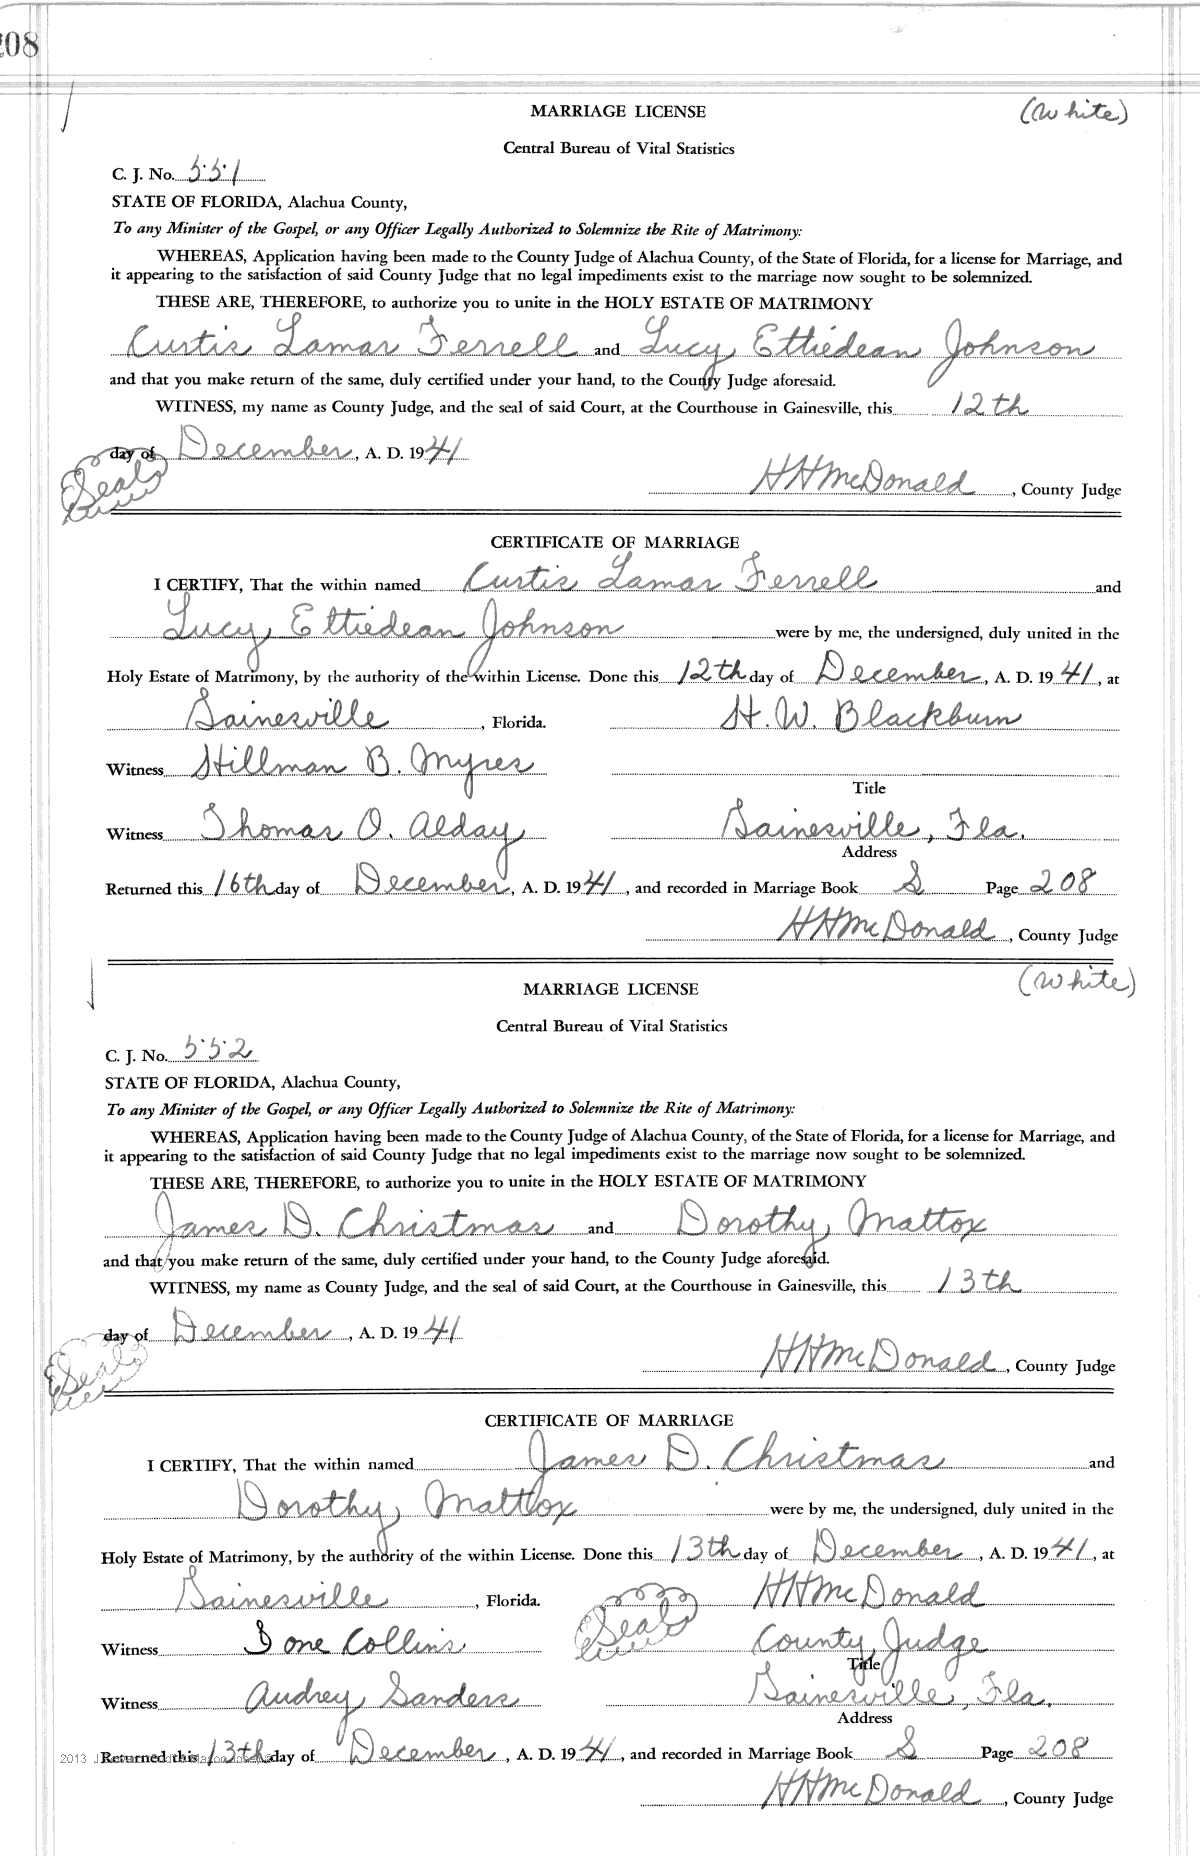 208
MARRIAGE LICENSE (White)
Central Bureau of Vital Statistics
C. J. No. 551
STATE OF FLORIDA, Alachua County,
To any Minister of the Gospel, or any Officer Legally Authorized to Solemnize the Rite of Matrimony:
WHEREAS, Application having been made to the County Judge of Alachua County, of the State of Florida, for a license for Marriage, and
it appearing to the satisfaction of said County Judge that no legal impediments exist to the marriage now sought to be solemnized.
THESE ARE, THEREFORE, to authorize you to unite in the HOLY ESTATE OF MATRIMONY
Curtis Lamar Ferrell and Lucy Ettiedean Johnson
and that you make return of the same, duly certified under your hand, to the County Judge aforesaid.
WITNESS, my name as County Judge, and the seal of said Court, at the Courthouse in Gainesville, this 12th
day of December, A. D. 1941
Seal H H McDonald, County Judge
CERTIFICATE OF MARRIAGE
I CERTIFY, That the within named Curtis Lamar Ferrell and
Lucy Ettiedean Johnson were by me, the undersigned, duly united in the
Holy Estate of Matrimony, by the authority of the within License. Done this 12th day of December, A. D. 1941, at
Gainesville, Florida. H. W. Blackburn
Witness Hillman B. Myres
Title
Witness Thomas O. Alday Gainesville, Fla.
Address
Returned this 16th day of December, A. D. 1941, and recorded in Marriage Book S Page 208
H H McDonald, County Judge
MARRIAGE LICENSE (White)
Central Bureau of Vital Statistics
C. J. No. 552
STATE OF FLORIDA, Alachua County,
To any Minister of the Gospel, or any Officer Legally Authorized to Solemnize the Rite of Matrimony:
WHEREAS, Application having been made to the County Judge of Alachua County, of the State of Florida, for a license for Marriage, and
it appearing to the satisfaction of said County Judge that no legal impediments exist to the marriage now sought to be solemnized.
THESE ARE, THEREFORE, to authorize you to unite in the HOLY ESTATE OF MATRIMONY
James D. Christmas and Dorothy Mattox
and that you make return of the same, duly certified under your hand, to the County Judge aforesaid.
WITNESS, my name as County Judge, and the seal of said Court, at the Courthouse in Gainesville, this 13th
day of December, A. D. 1941
Seal H H McDonald, County Judge
CERTIFICATE OF MARRIAGE
I CERTIFY, That the within named James D. Christmas and
Dorothy Mattox were by me, the undersigned, duly united in the
Holy Estate of Matrimony, by the authority of the within License. Done this 13th day of December, A. D. 1941, at
Gainesville, Florida. Seal H H McDonald
Witness Ione Collins County Judge
Title
Witness Audrey Sanders Gainesville, Fla.
Address
2013 Returned this 13th day of December, A. D. 1941, and recorded in Marriage Book S Page 208
H H McDonald, County Judge